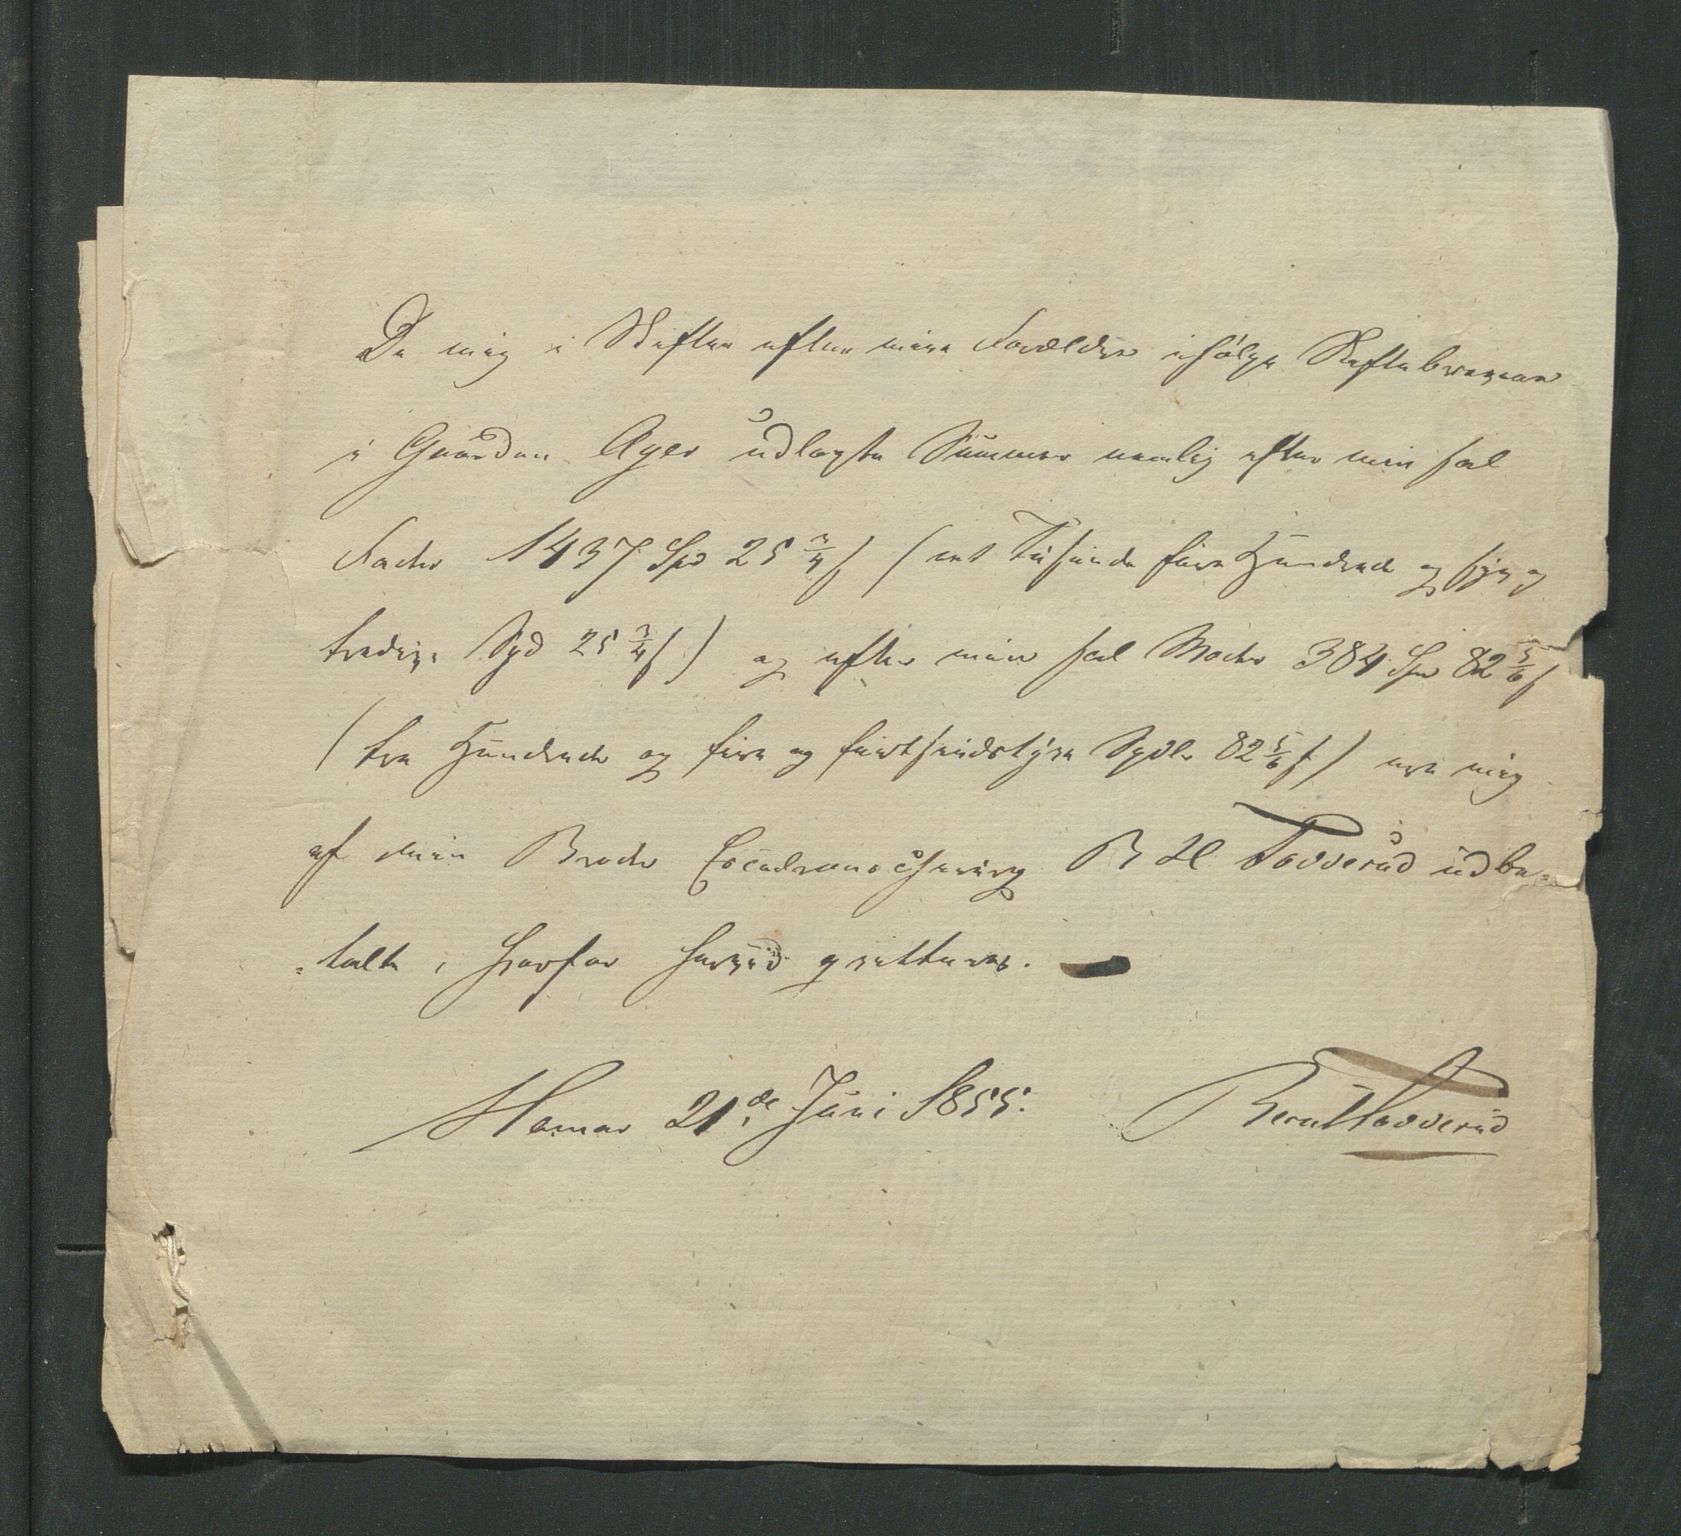 De mig i Skiftet efter mine Forældre ifølge Skiftebrevene
i Gaarden Ager udlagte Summer nemlig efter min sal
Fader 1437 Spd 25 3/4 s (et Tusinde fire Hundrede og syv og
tredive Spd 25 3/4 s) og efter min sal Moder 384 Spd 82 5/6 s
(tre Hundrede og fire og fiirsindstyve Spdlr 82 5/6 s) ere mig
af min Broder B H Todderud udbe=
=talte, hvorfor herved qvitteres.
Hamar 21de Juni 1855. Bernt Todderud